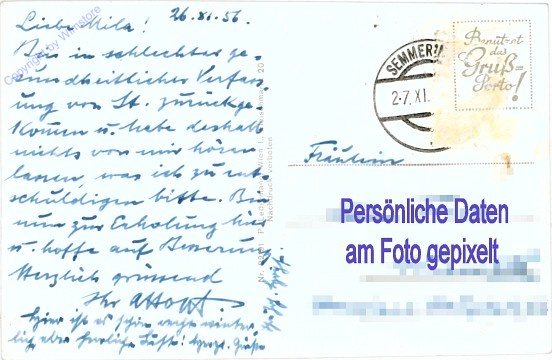 26.XI.56.
Liebe Mila!
Bin in schlechter ge-
sundheitlicher Verfas-
sung von St. zurückge-
kommen u. habe deshalb
nichts von mir hören
lassen, was ich zu ent-
schuldigen bitte. Bin
nun zur Erholung hier
u. hoffe auf Besserung
Herzlich grüssend
Ihr
Hier ist es schön
aber herrliche Luft!
Copyright by Wienstore
Nachdruck verboten
SEMMERI
27.XI.
Benützet
das
Gruß=
Porto!
Fräulein
Persönliche Daten
am Foto gepixelt